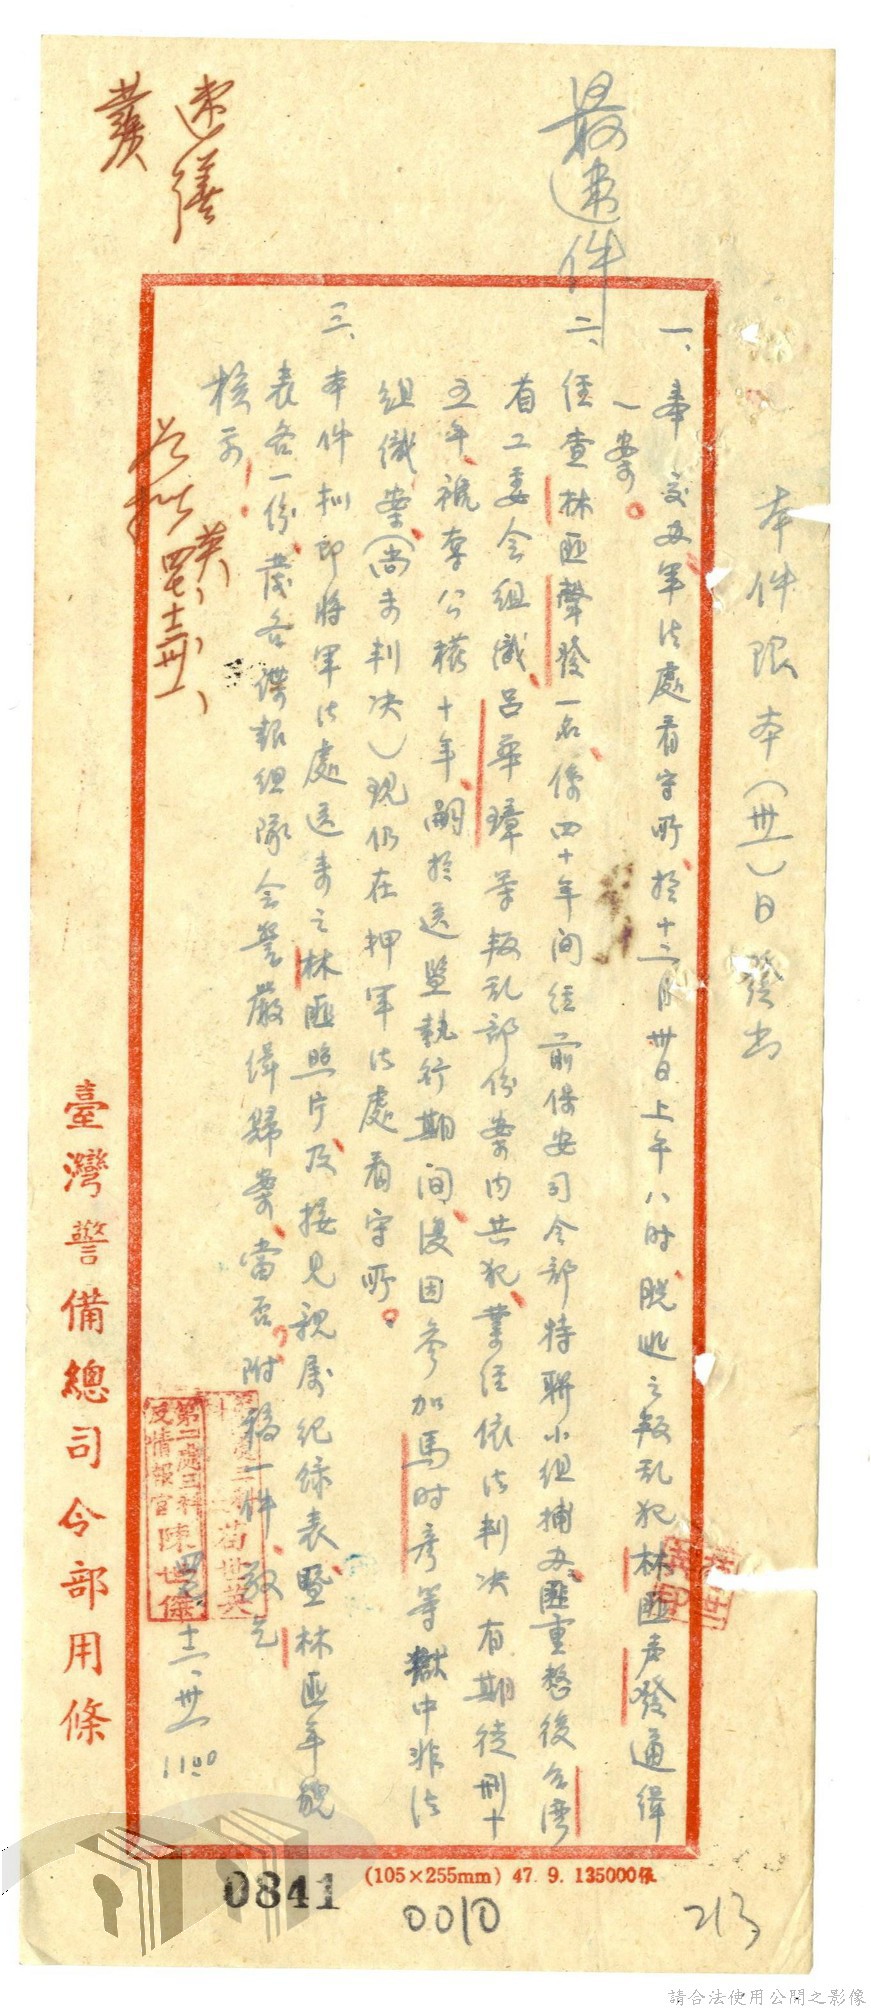 最速件
速繕
發
本件限本(卅一)日發出
一、奉 交下軍法處看守所、於十二月卅日上午八时、脫逃之叛乱犯林匪声發通緝
一案。
二、經查林匪聲發一名、係四十年间經前保安司令部特联小组捕办匪重整後台湾
省工委会组織、呂華璋等叛乱部份案内共犯、業经依法判决有期徒刑十
五年、褫奪公權十年、嗣於送監執行期间、復因參加馬时彥等獄中非法
組織案(尚未判决)现仍在押軍法處看守所。
三、本件拟即将軍法處送来之林匪照片、及接见親属纪録表、暨林匪年貌
表各一份、發各諜報组隊会警嚴緝歸案、當否?附稿一件、敬乞
核示
荀世英
第二處三科
反情報官
陳世傑
十二、卅一
1100
如拟
英
十二卅一
臺灣警備總司令部用條
(105×255mm) 47. 9. 135000張
0841
0010
213
請合法使用公開之影像